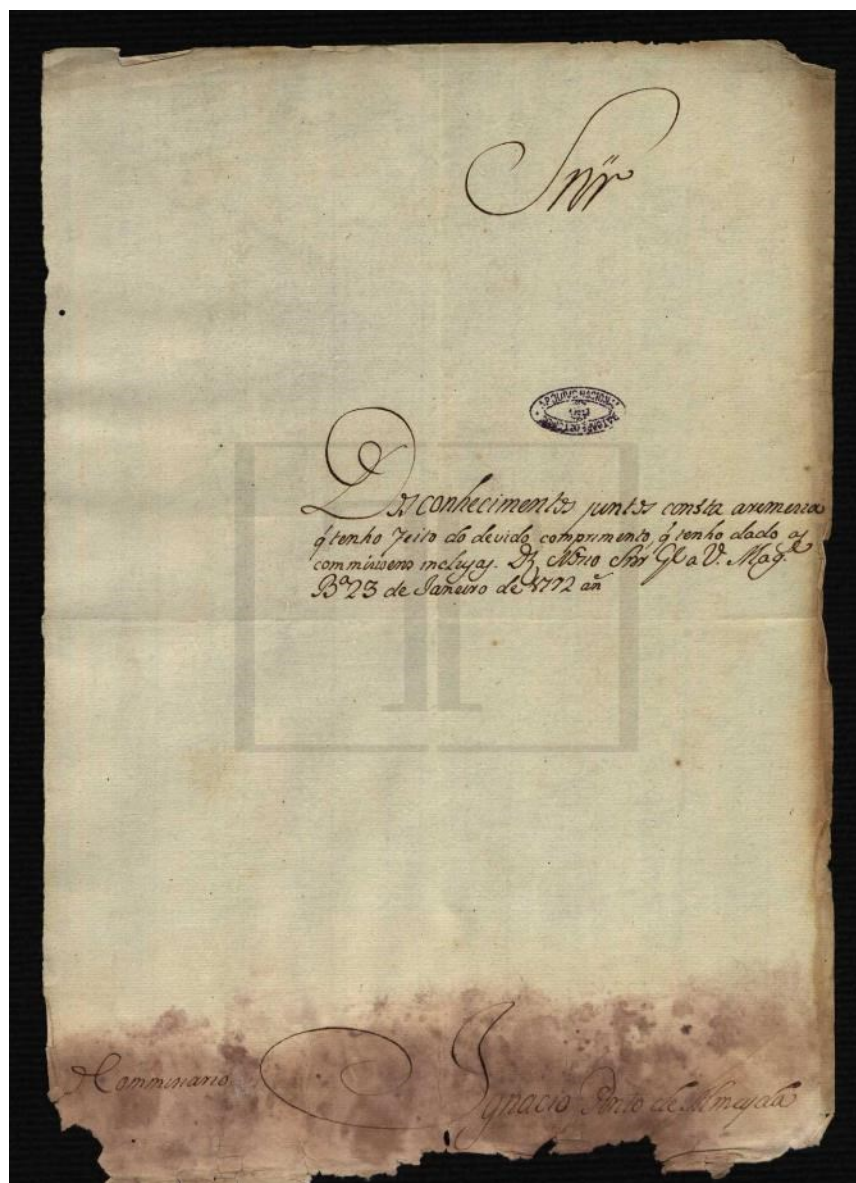 Snr̃
Dos conhecimentos juntos consta aremessa
q̃ tenho feito do devido comprimento, q̃ tenho dado as
commissens inclusas. Ds Nosso Snr Gde a V. Mag.e
Bª 23 de Janeiro de 1772 añ
ARQUIVO NACIONAL
O Commissario
Ignacio Pinto de Almeyda